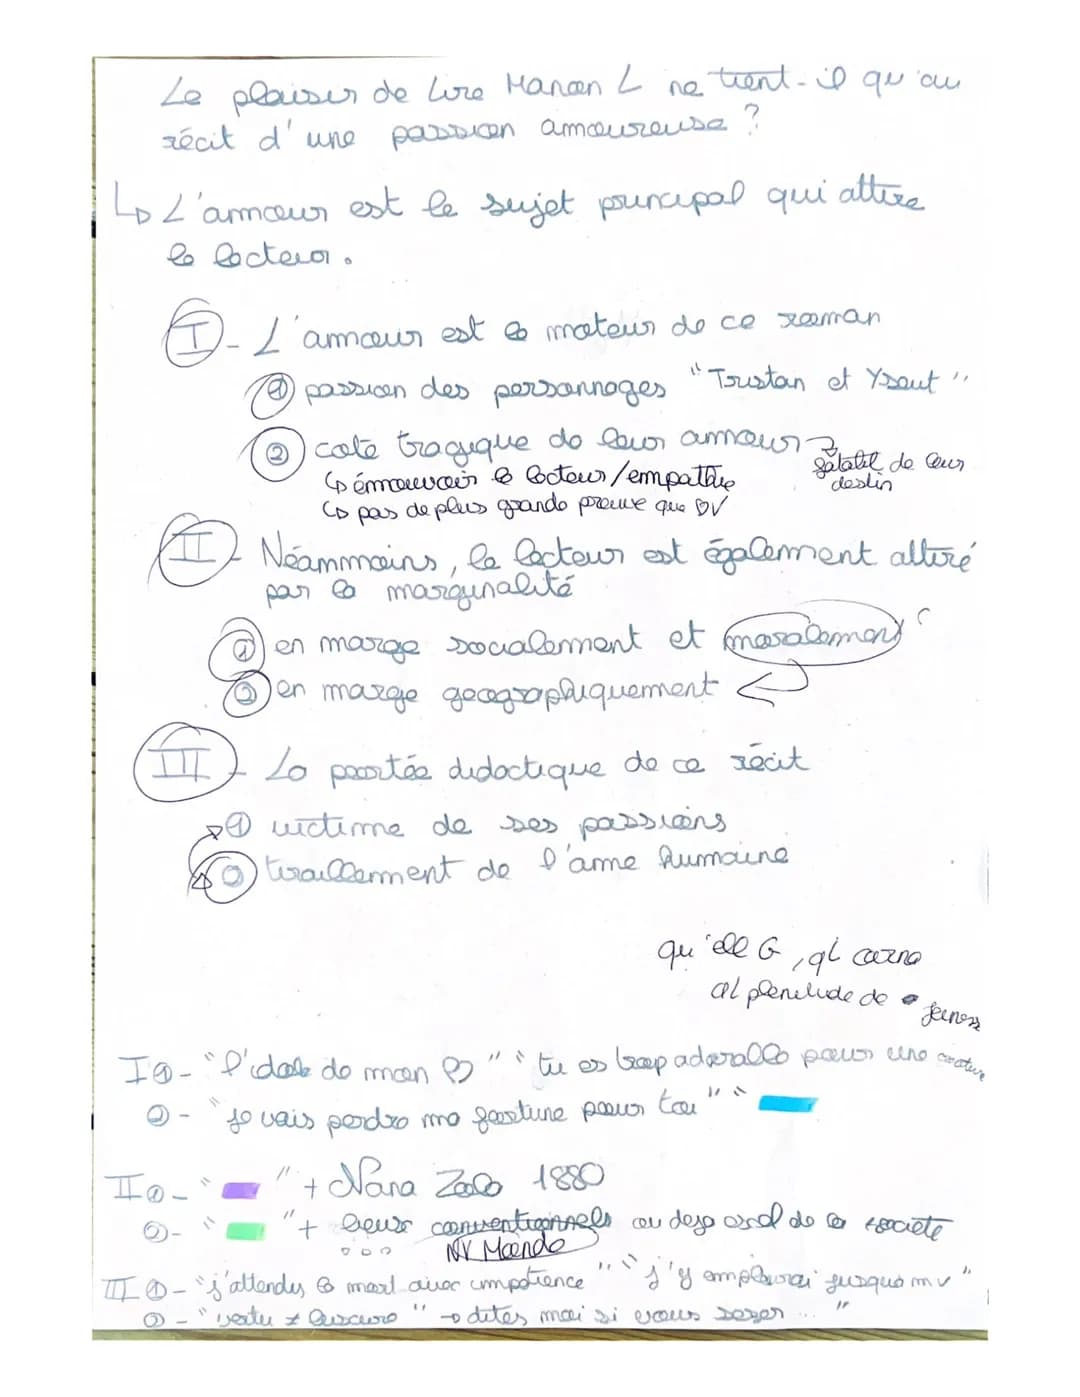 Le plaisir de lire Manon L ne tient-il qu'au
récit d'une passion amoureuse ?
↳ L'amour est le sujet principal qui attire
le lecteur.
I - L'amour est le moteur de ce roman
① passion des personnages "Tristan et Yseut"
② coté tragique de leur amour → fatalité de leur
destin
↳ émouvoir le lecteur/empathie
↳ pas de plus grande preuve que ♡V
II - Néammoins, le lecteur est également attiré
par la marginalité
① en marge socialement et moralement
② en marge geographiquement
III - La portée didactique de ce récit
① victime de ses passions
② tiraillement de l'ame humaine
qu'elle G, qL
al plenitude de jeuness
I ① - "l'idole de mon ♡" "tu es trop adorable pour une creature
② - "je vais perdre ma fortune pour toi" "
II ① - " " + Nana Zola 1880
② - " " + lieux conventionnels au dejo de la societe
NV Monde
III ① - "j'attendis la mort avec impatience" "j'y emploierai jusqua mv"
② - "vertu ≠ → dites moi si vous ..."